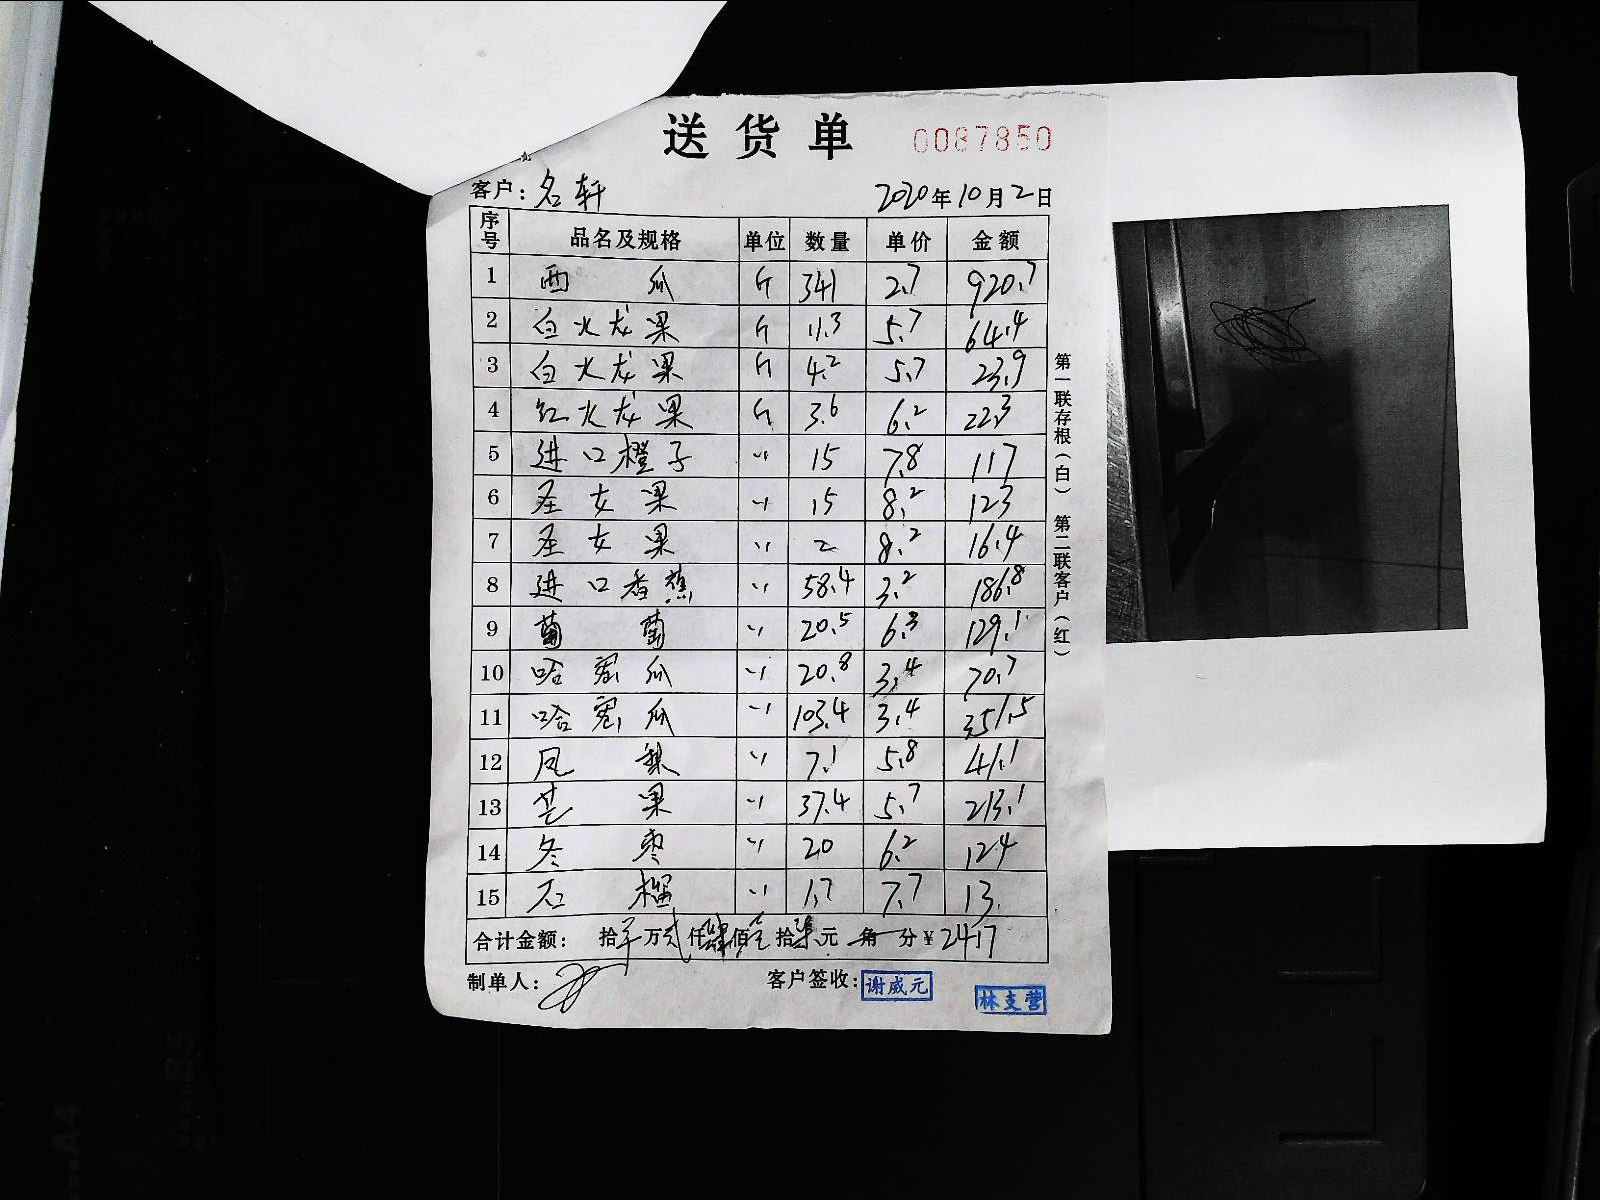 送货单 0087850
客户: 名轩 2020年10月2日
序号 品名及规格 单位 数量 单价 金额
1 西瓜 斤 341 2.7 920.7
2 白火龙果 斤 11.3 5.7 64.4
3 白火龙果 斤 4.2 5.7 23.9
4 红火龙果 斤 3.6 6.2 22.3
5 进口橙子 〃 15 7.8 117
6 圣女果 〃 15 8.2 123
7 圣女果 〃 2 8.2 16.4
8 进口香蕉 〃 58.4 3.2 186.8
9 葡萄 〃 20.5 6.3 129.1
10 哈密瓜 〃 20.8 3.4 70.7
11 哈密瓜 〃 103.4 3.4 351.5
12 凤梨 〃 7.1 5.8 41.1
13 芒果 〃 37.4 5.7 213.1
14 冬枣 〃 20 6.2 124
15 石榴 〃 1.7 7.7 13.
合计金额: 拾 万弍仟肆佰壱拾柒元 角 分 ¥2417
制单人: 客户签收: 谢威元
林支营
第一联存根(白) 第二联客户(红)